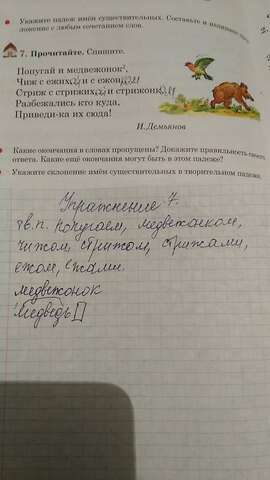 Укажите падеж имён существительных. Составьте и
ложение с любым сочетанием слов.
7. Прочитайте. Спишите.
Попугай и медвежонок²,
Чиж с ежих и с ежом
Стриж с стрижих и стрижонк
Разбежались кто куда.
Приведи-ка их сюда!
И. Демьянов
Какие окончания в словах пропущены? Докажите правильность
ответа. Какие ещё окончания могут быть в этом падеже?
Укажите склонение имён существительных в творительном падеже.
Упражнение 7.
Зв.п. попугаем, медвежонком,
чижом, стрижом, стрижами,
ежом, ежами.
медвежонок
медведь